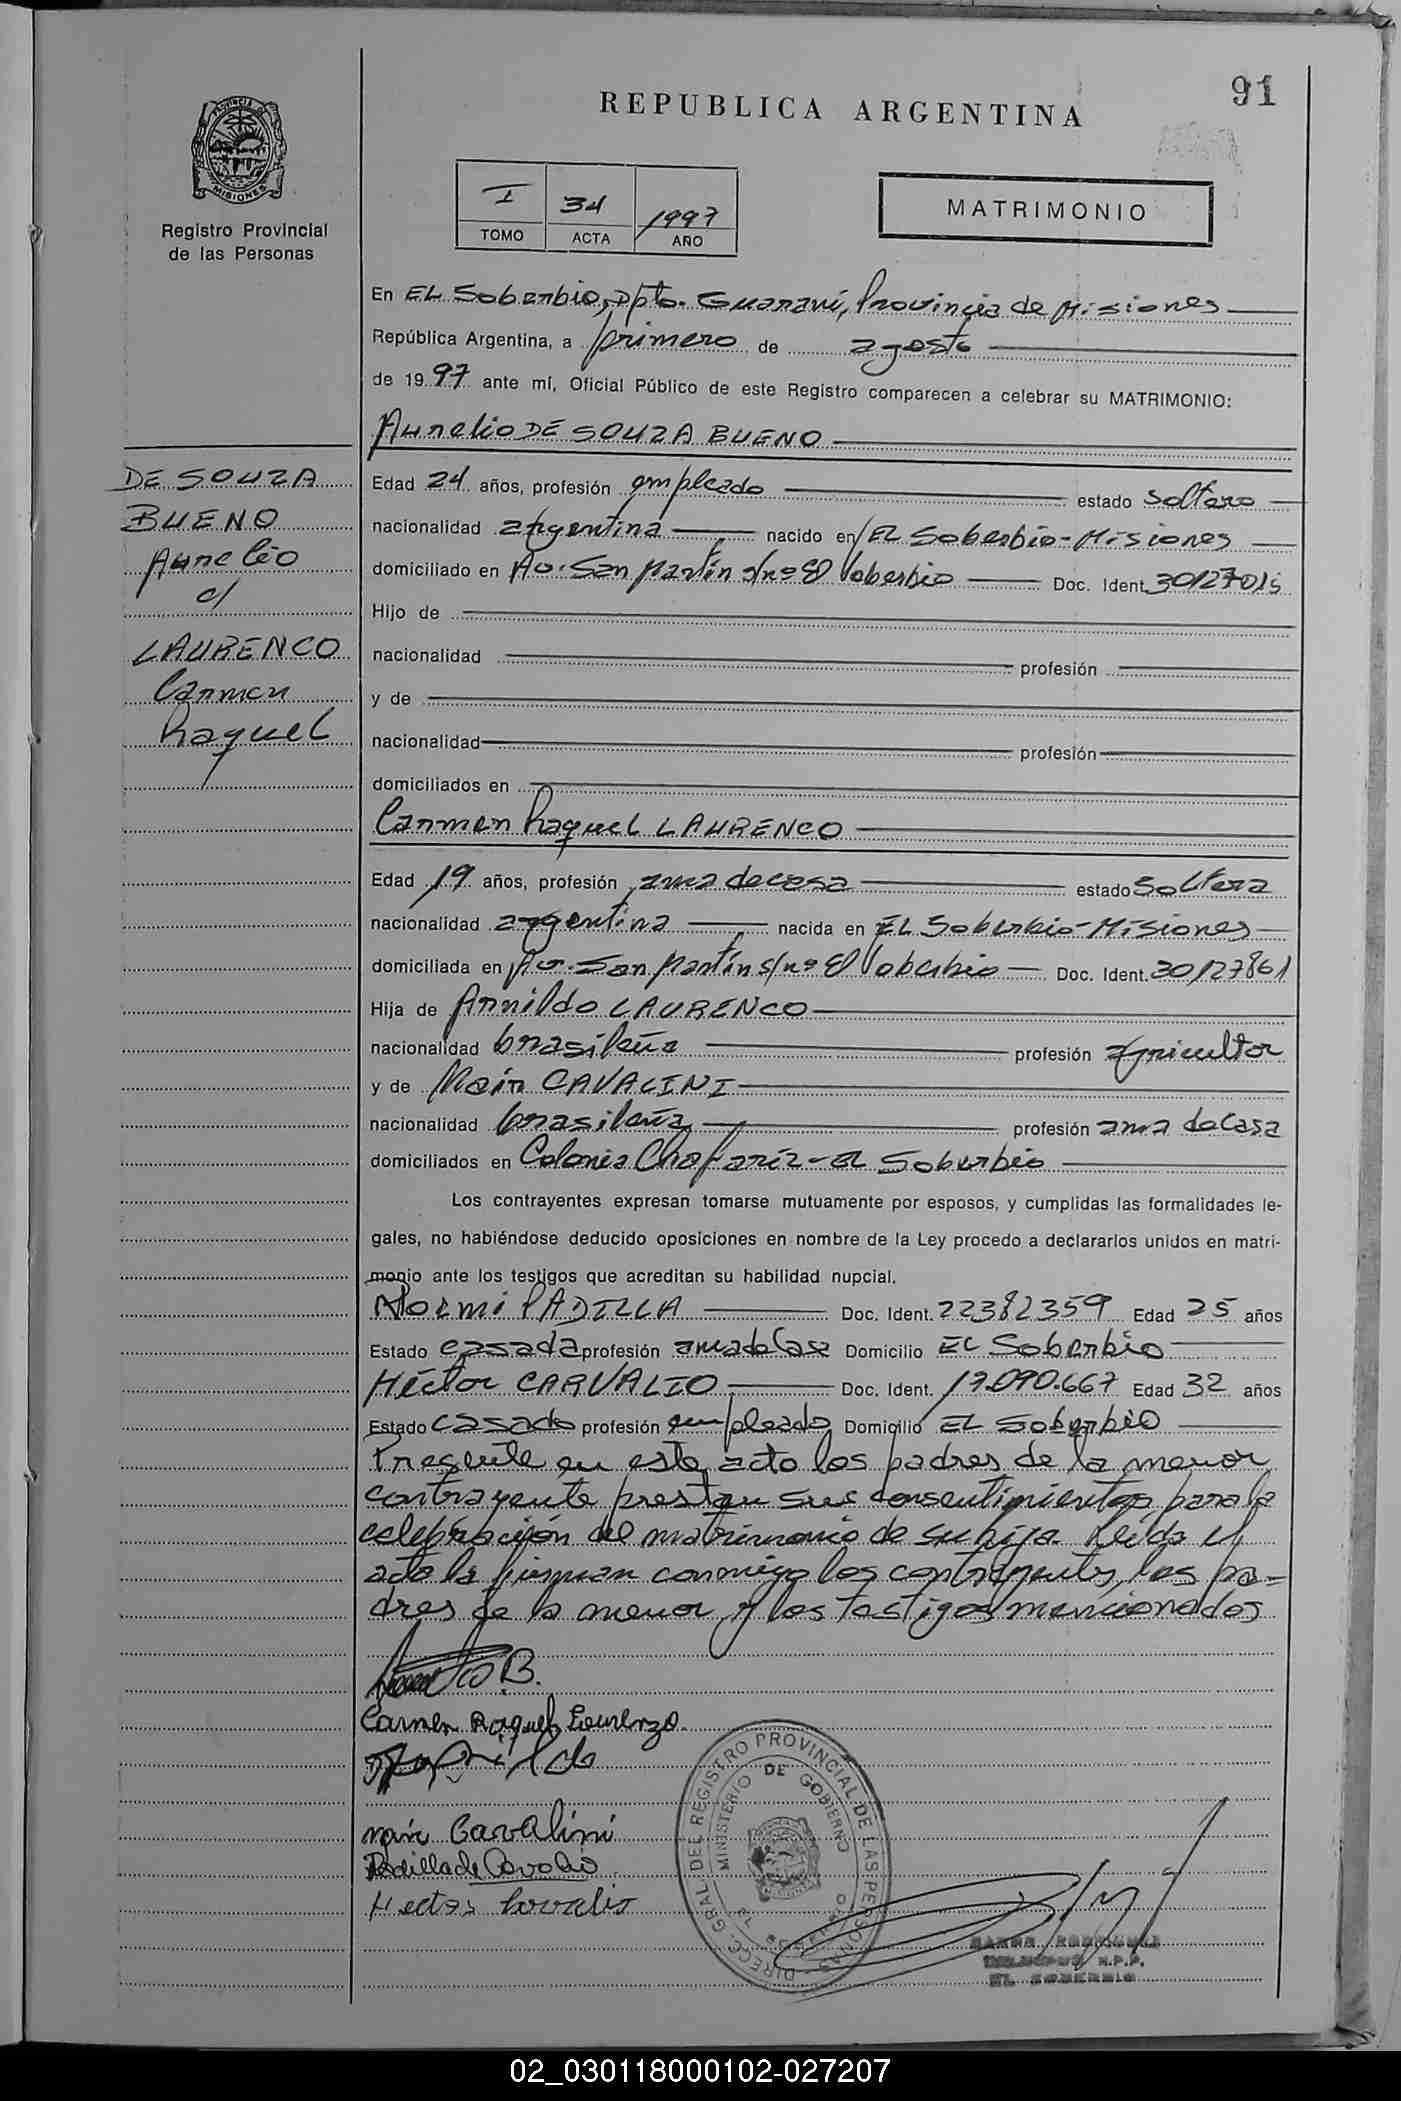 91
REPUBLICA ARGENTINA
PROVINCIA DE
MISIONES
Registro Provincial
de las Personas
I 34 1997
TOMO ACTA AÑO
MATRIMONIO
En EL Soberbio, Dpto. Guaraní, Provincia de Misiones
República Argentina, a primero de agosto
de 1997 ante mí, Oficial Público de este Registro comparecen a celebrar su MATRIMONIO:
Aurelio DE SOUZA BUENO
DE SOUZA
BUENO
Aurelio
c/
LAURENCO
Carmen
Raquel
Edad 24 años, profesión empleado estado soltero
nacionalidad argentina nacido en EL Soberbio-Misiones
domiciliado en Av. San Martín s/nº El Soberbio Doc. Ident. 30127015
Hijo de
nacionalidad profesión
y de
nacionalidad profesión
domiciliados en
Carmen Raquel LAURENCO
Edad 19 años, profesión ama de casa estado soltera
nacionalidad argentina nacida en EL Soberbio-Misiones
domiciliada en Av. San Martín s/nº El Soberbio Doc. Ident. 30127861
Hija de Arnildo LAURENCO
nacionalidad brasileña profesión agricultor
y de Mair CAVALINI
nacionalidad brasileña profesión ama de casa
domiciliados en Colonia Chafaríz - El Soberbio
Los contrayentes expresan tomarse mutuamente por esposos, y cumplidas las formalidades le-
gales, no habiéndose deducido oposiciones en nombre de la Ley procedo a declararlos unidos en matri-
monio ante los testigos que acreditan su habilidad nupcial.
Noemi PADILLA Doc. Ident. 22382359 Edad 25 años
Estado casada profesión ama de Casa Domicilio EL Soberbio
Héctor CARVALIO Doc. Ident. 17.090.667 Edad 32 años
Estado casado profesión empleado Domicilio EL Soberbio
Presente en este acto los padres de la menor
contrayente prestan sus consentimientos para la
celebración del matrimonio de su hija. Leída el
acta la firman conmigo los contrayentes, los pa=
dres de la menor y los testigos mencionados
B.
Carmen Raquel Lourenzo.
Mair Cavalini
Padilla de
Hector
DIRECC. GRAL. DEL REGISTRO PROVINCIAL DE LAS PERSONAS
MINISTERIO DE GOBIERNO
R.P.P.
EL SOBERBIO
02_030118000102-027207